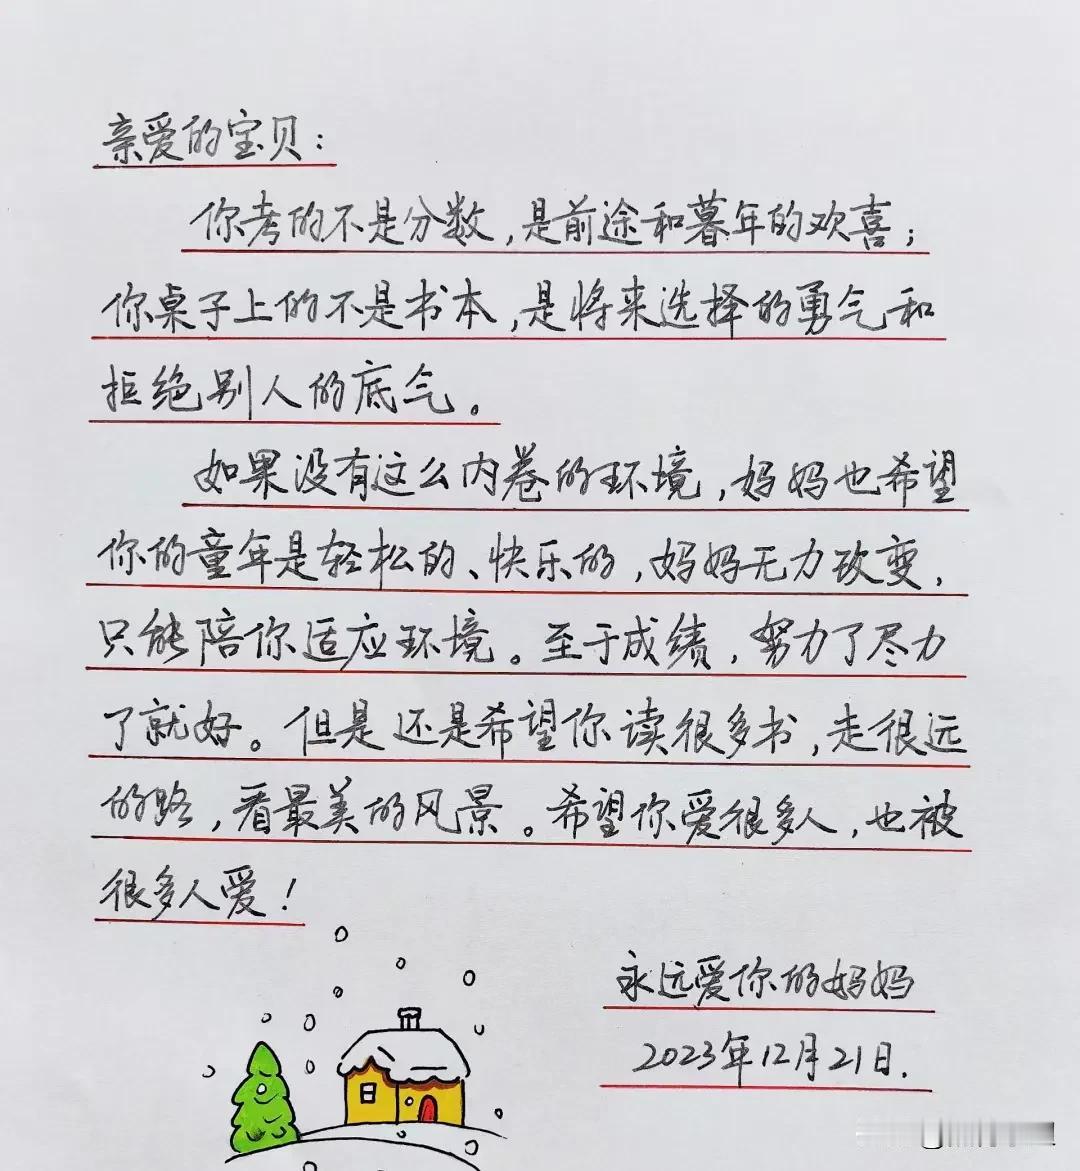 亲爱的宝贝：
你考的不是分数，是前途和暮年的欢喜；
你桌子上的不是书本，是将来选择的勇气和
拒绝别人的底气。
如果没有这么内卷的环境，妈妈也希望
你的童年是轻松的、快乐的，妈妈无力改变，
只能陪你适应环境。至于成绩，努力了尽力
了就好。但是还是希望你读很多书，走很远
的路，看最美的风景。希望你爱很多人，也被
很多人爱！
永远爱你的妈妈
2023年12月21日.